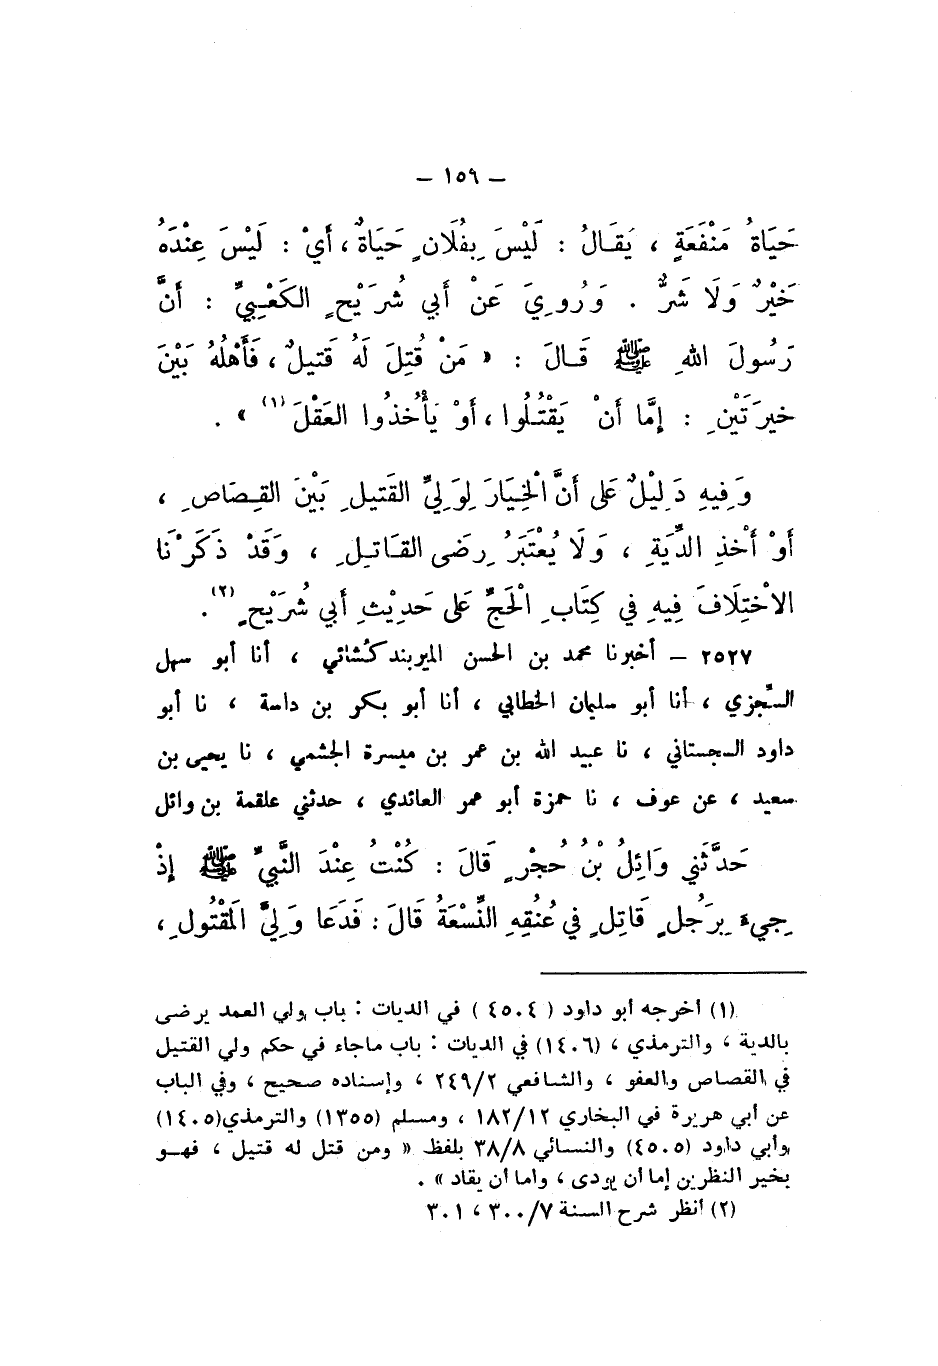 – ١٥٩ –
حَيَاةُ مَنْفَعَةٍ ، يُقَالُ : لَيْسَ بِفُلَانٍ حَيَاةٌ ، أَيْ : لَيْسَ عِنْدَهُ
خَيْرٌ وَلَا شَرٌّ . وَرُوِيَ عَنْ أَبِي شُرَيْحٍ الكَعْبِيِّ : أَنَّ
رَسُولَ اللهِ ﷺ قَالَ : « مَنْ قُتِلَ لَهُ قَتِيلٌ ، فَأَهْلُهُ بَيْنَ
خِيرَتَيْنِ : إِمَّا أَنْ يَقْتُلُوا ، أَوْ يَأْخُذُوا العَقْلَ (١) » .
وَفِيهِ دَلِيْلٌ عَلى أَنَّ الْخِيَارَ لِوَلِيِّ القَتيلِ بَيْنَ القِصَاصِ ،
أَوْ أَخْذِ الدِّيَةِ ، وَلَا يُعْتَبَرُ رِضَى القَاتِلِ ، وَقَدْ ذَكَرْنَا
الاخْتِلَافَ فِيهِ فِي كِتَابِ الْحَجِّ عَلَى حَدِيْثِ أَبي شُرَيْحٍ (٢) .
٢٥٢٧ – أخبرنا محمد بن الحسن الميربندكشائي ، أنا أبو سهل
السِّجزي ، أنا أبو سليمان الخطابي ، أنا أبو بكر بن داسة ، نا أبو
داود السجستاني ، نا عبيد الله بن عمر بن ميسرة الجشمي ، نا يحيى بن
سعيد ، عن عوف ، نا حمزة أبو عمر العائذي ، حدثني علقمة بن وائل
حَدَّثَني وَائِلُ بْنُ حُجْرٍ قَالَ : كُنْتُ عِنْدَ النَّبِيِّ ﷺ إِذْ
جِيءَ بِرَجُلٍ قَاتِلٍ فِي عُنُقِهِ النِّسْعَةُ قَالَ : فَدَعَا وَلِيَّ المَقْتُولِ ،
(١) أخرجه أبو داود ( ٤٥٠٤ ) في الديات : باب ولي العمد يرضى
بالدية ، والترمذي ، (١٤٠٦) في الديات : باب ماجاء في حكم ولي القتيل
في القصاص والعفو ، والشافعي ٢٤٩/٢ ، وإسناده صحيح ، وفي الباب
عن أبي هريرة في البخاري ١٨٢/١٢ ، ومسلم (١٣٥٥) والترمذي(١٤٠٥)
وأبي داود (٤٥٠٥) والنسائي ٣٨/٨ بلفظ « ومن قتل له قتيل ، فهو
بخير النظرين إما أن يودى ، وإما أن يقاد » .
(٢) أنظر شرح السنة ٣٠٠/٧ ، ٣٠١